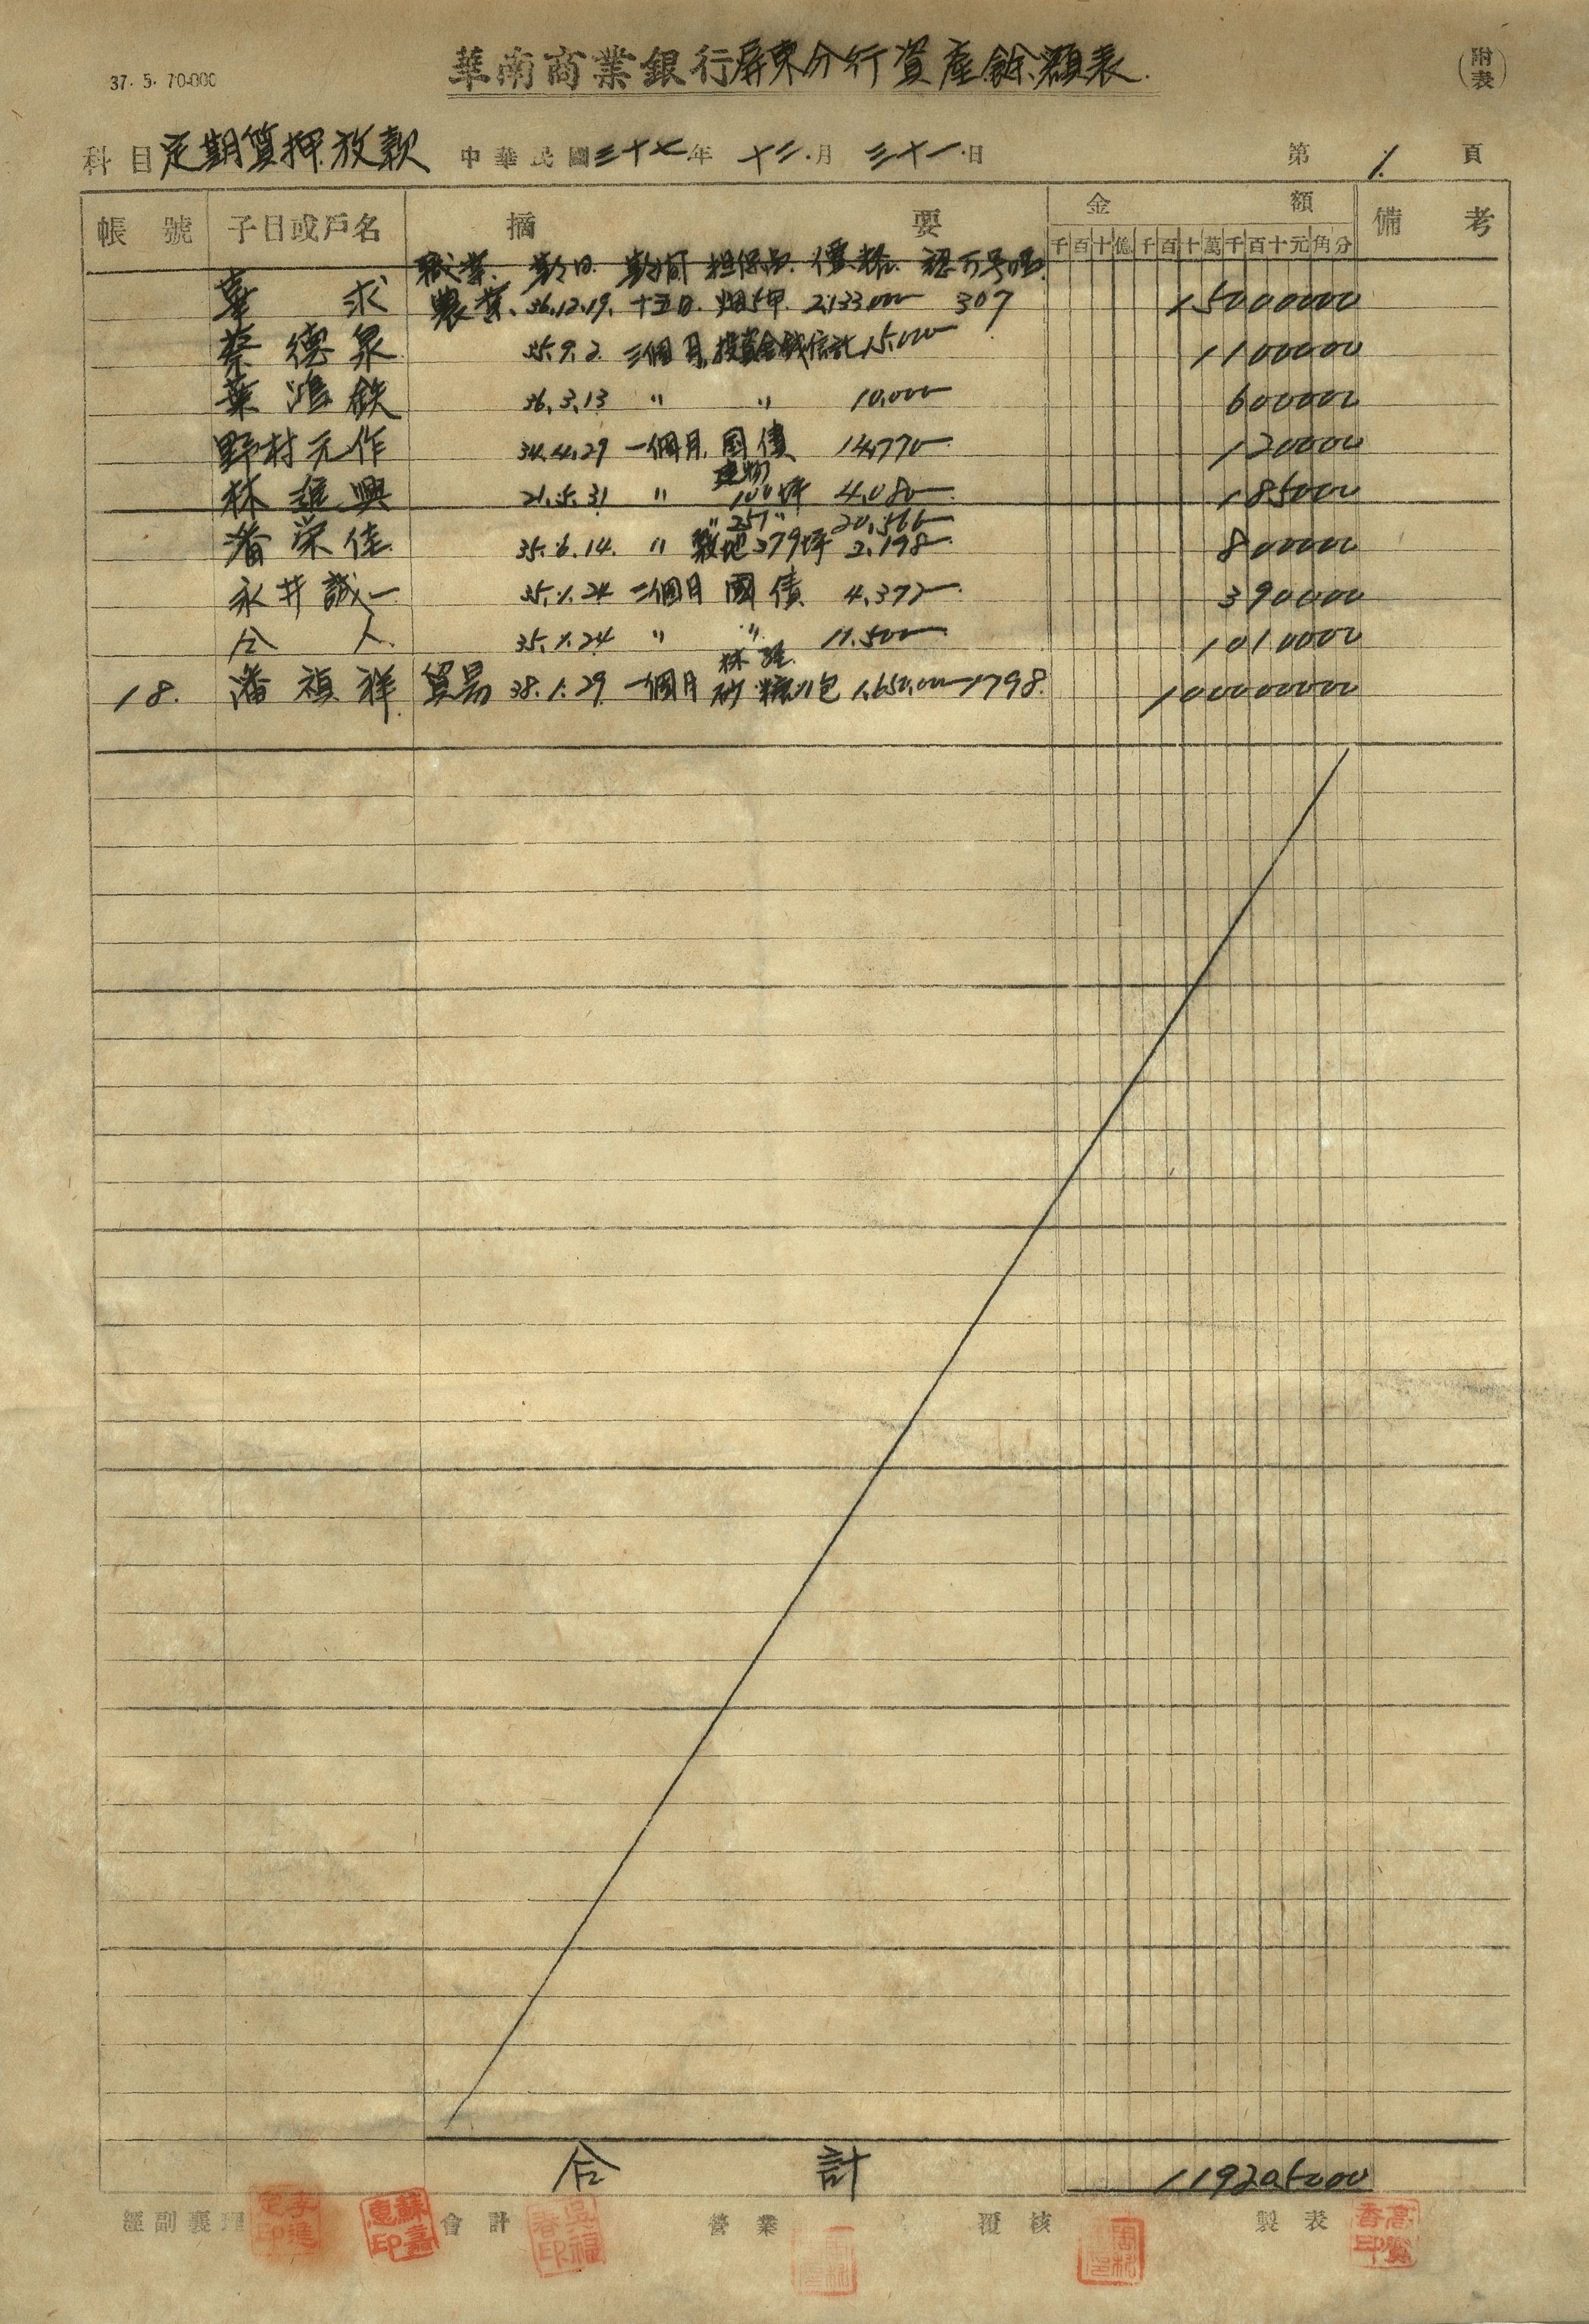 37. 5. 70.000
華南商業銀行屏東分行資產餘額表
(附表)
科目 定期質押放款 中華民國三十七年 十二月 三十一日 第 1 頁
帳號 子目或戶名 摘要 金額 備考
千百十億千百十萬千百十元角分
職業 担保品 價格
求 農業 36.12.19. 十五日 2,133,000 307 15000000
蔡德泉 35.9.2 三個月 投資金錢信託 15,000 1100000
葉鴻鉄 36.3.13 〃 〃 10,000 600000
野村元作 34.4.29 一個月 国債 14,770 120000
建物
林進興 21.5.31 〃 100坪 4,080 185000
〃251〃 20,566
潘栄佳 35.6.14. 〃 敷地379坪 2,198 800000
永井誠一 35.1.24 二個月 國債 4,372 390000
仝人 35.1.24 〃 〃 11,500 1010000
18. 潘禎祥 貿易 38.1.29 一個月 砂糖11包 1,650,000 1798. 100000000
合計 119205000
經副襄理 會計 營業 覆核 製表
李進定印
蘇嘉惠印
吳福春印
高賢香印